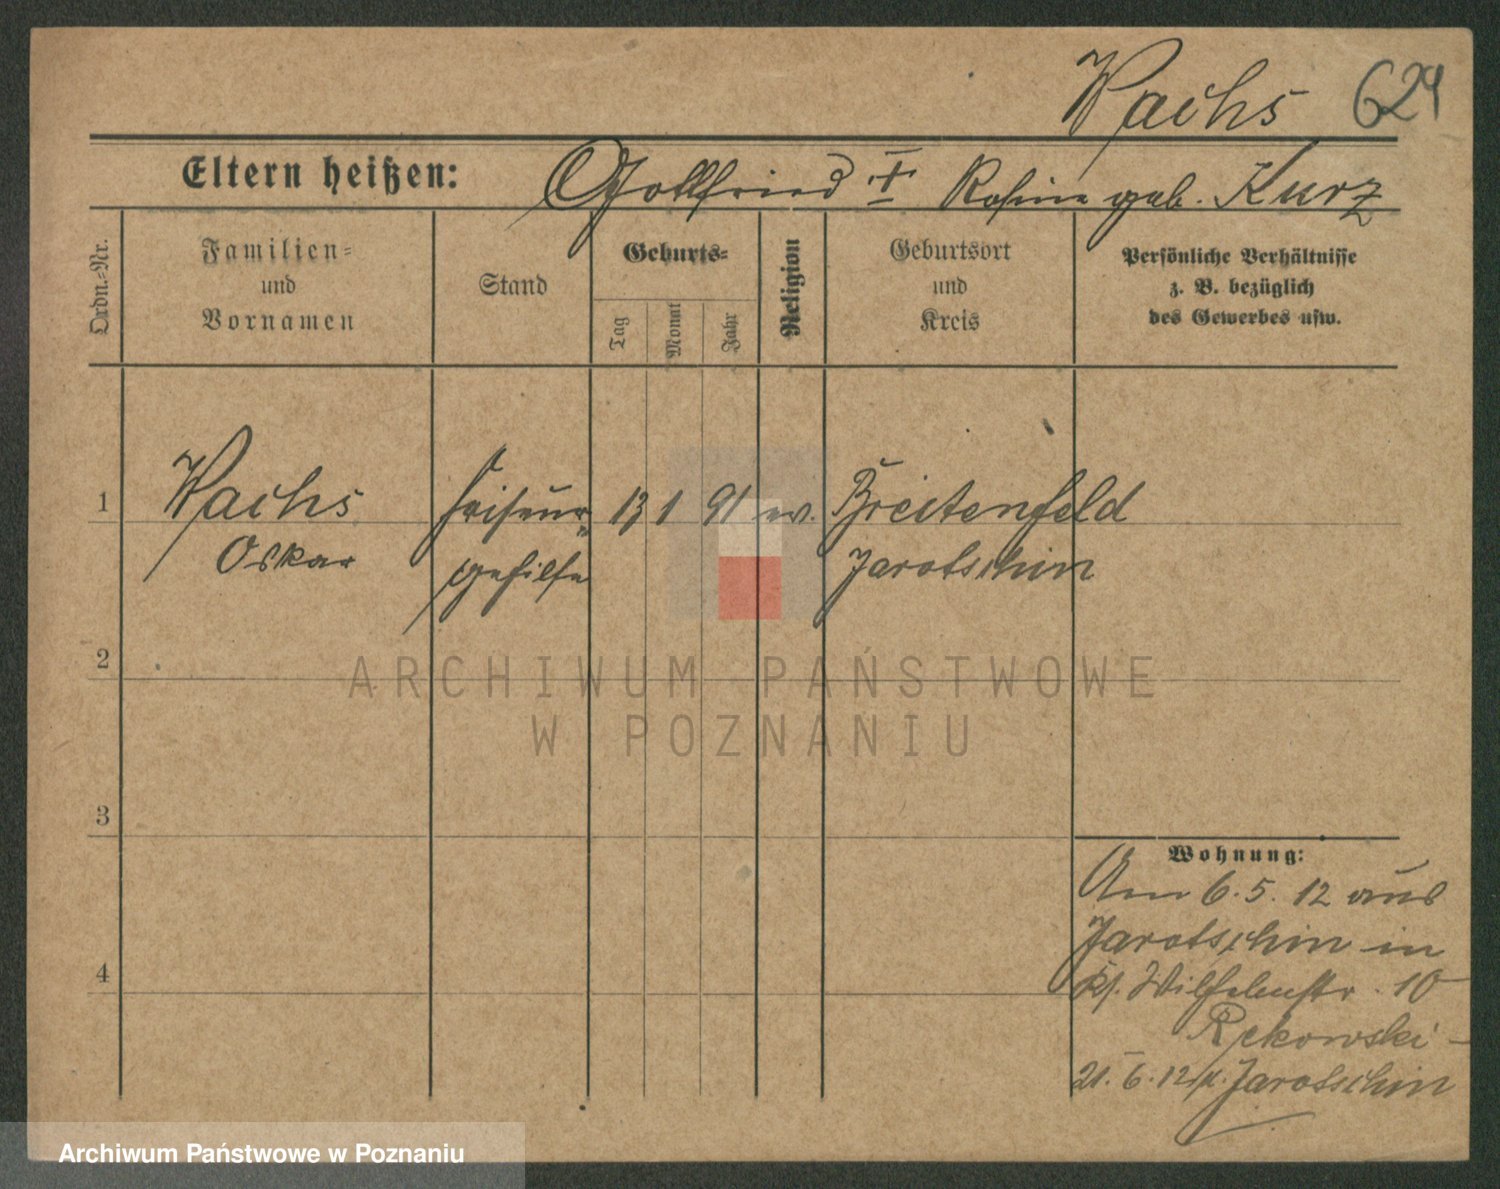 Wachs 624
Eltern heißen: Gottfried † Rosine geb. Kurz
Ordn.-Nr.
Familien-
und
Vornamen
Stand
Geburts-
Tag
Monat
Jahr
Religion
Geburtsort
und
Kreis
Persönliche Verhältnisse
z. B. bezüglich
des Gewerbes usw.
1 Wachs Friseur- 13 1 91 ev. Breitenfeld
Oskar gehilfe Jarotschin
2
ARCHIWUM PAŃSTWOWE
W POZNANIU
3
Wohnung:
Am 6.5.12 aus
Jarotschin in
4
Wilhelmstr. 10
Rekowski
21.6.12 Jarotschin
Archiwum Państwowe w Poznaniu